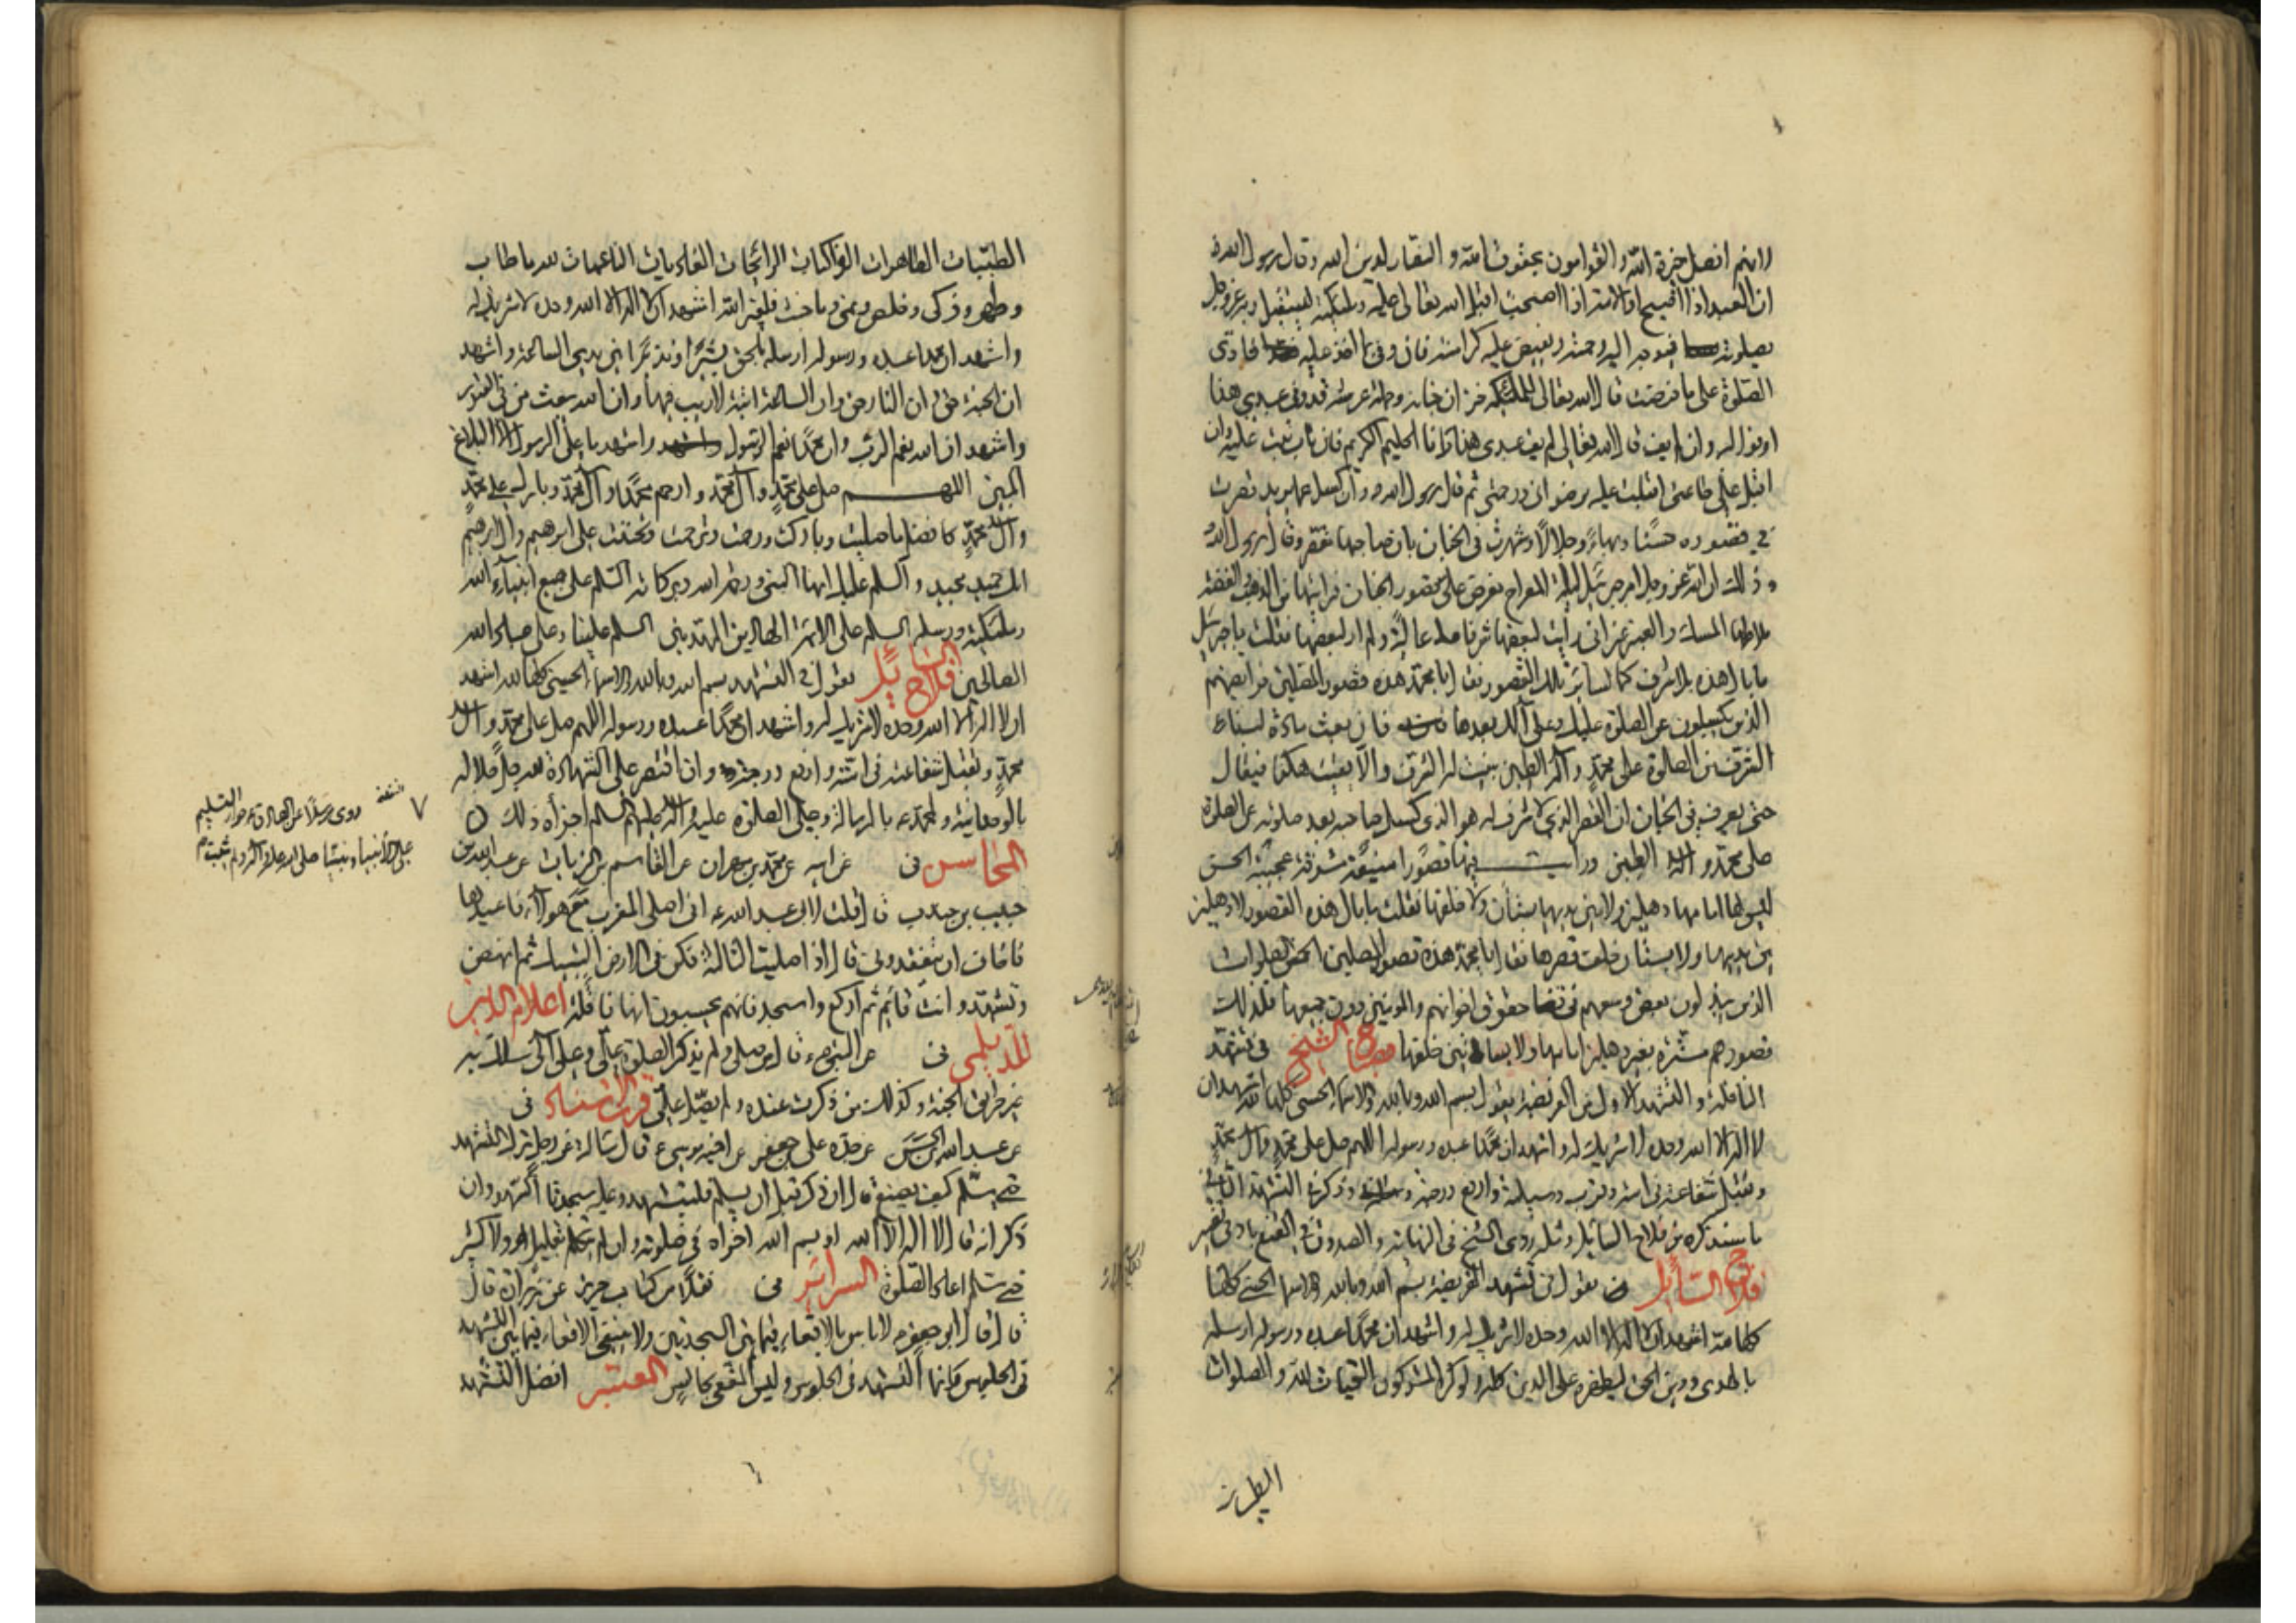 لانهم افضل خيرة الله والقوامون بحقوق الله و النصار لدين الله وقال رسول الله
ان العبد اذا اصبح او الامة اذا اصبحت اقبل الله تعالى عليه وملئكته ليستقبل ربه عز وجل
بصلوته فيوجه اليه رحمته ويفيض عليه كرامته فان وفى بما اخذ عليه فادى
الصلوة على ما فرضت قال الله تعالى للملئكة خزان جنانه وحملة عرشه قد وفى عبدي هذا
اوفوا له وان لم يف قال الله تعالى لم يف عبدي هذا وانا الحليم الكريم فان تاب تبت عليه وان
اقبل على طاعتي اقبلت عليه برضواني ورحمتي ثم قال رسول الله وان كسل عما يريد قصرت
في قصوره حسنا وبهاء وجلالا وشهرت في الجنان بان صاحبها مقصر وقال رسول الله
وذلك ان الله عز وجل امر جبرئيل ليلة المعراج فعرض علي قصور الجنان فرايتها من الذهب والفضة
ملاطها المسك والعنبر غير اني رايت لبعضها شرفا عالية ولم ار لبعضها فقلت يا جبرئيل
ما بال هذه بلا شرف كما لسائر تلك القصور فقال يا محمد هذه قصور المصلين فرايضهم
الذين يكسلون عن الصلوة عليك وعلى آلك بعدها فان بعث مادة لبناء
الشرف من الصلوة على محمد وآله الطيبين بنيت له الشرف والا بقيت هكذا فيقال
حتى يعرف في الجنان ان القصر الذي لا شرف له هو الذي كسل صاحبه بعد صلوته عن الصلوة
على محمد و آله الطيبين ورايت فيها قصورا منيفة مشرفة عجيبة الحسن
ليس لها امامها دهليز ولا بين يديها بستان ولا خلفها فقلت ما بال هذه القصور لا دهليز
بين يديها ولا بستان خلف قصرها فقال يا محمد هذه قصور المصلين الخمس الصلوات
الذين يبذلون بعض وسعهم في قضاء حقوق اخوانهم المؤمنين دون جميعها فلذلك
قصورهم مسترة بغير دهليز امامها ولا بساتين خلفها مصباح الشيخ في تشهد
النافلة و التشهد الاول من الفريضة يقول بسم الله وبالله والاسماء الحسنى كلها لله اشهد ان
لا اله الا الله وحده لا شريك له واشهد ان محمدا عبده ورسوله اللهم صل على محمد وآل محمد
وتقبل شفاعته في امته وقرب وسيلته وارفع درجته وذكر في التشهد الثاني
ما سنذكره من فلاح السائل ومثله روى الشيخ في النهاية و الصدوق في المقنع بادنى تغيير
فلاح السائل يقول في تشهد الفريضة بسم الله وبالله والاسماء الحسنى كلها
لله اشهد ان لا اله الا الله وحده لا شريك له واشهد ان محمدا عبده ورسوله ارسله
بالهدى ودين الحق ليظهره على الدين كله ولو كره المشركون التحيات لله و الصلوات
الطيبات الطاهرات الزاكيات الرائحات الغاديات الناعمات لله ما طاب
وطهر وزكى وخلص ونمى وما خبث فلغير الله اشهد ان لا اله الا الله وحده لا شريك له
واشهد ان محمدا عبده ورسوله ارسله بالحق بشيرا ونذيرا بين يدي الساعة واشهد
ان الجنة حق وان النار حق وان الساعة اتية لا ريب فيها وان الله يبعث من في القبور
واشهد ان الله نعم الرب وان محمدا نعم الرسول واشهد ما على الرسول الا البلاغ
المبين اللهم صل على محمد وآل محمد وارحم محمدا وآل محمد وبارك على محمد
وآل محمد كافضل ما صليت وباركت ورحمت وترحمت وتحننت على ابرهيم وآل ابرهيم
انك حميد مجيد والسلم عليك ايها النبي ورحمة الله وبركاته السلم على جميع انبياء الله
وملئكته ورسله السلم على الائمة الهادين المهديين السلم علينا وعلى عباد الله
الصالحين فلاح السائل يقول في التشهد بسم الله وبالله والاسماء الحسنى كلها لله اشهد
ان لا اله الا الله وحده لا شريك له واشهد ان محمدا عبده ورسوله اللهم صل على محمد وآل
محمد وتقبل شفاعته في امته وارفع درجته وان اقتصر على الشهادة لله جل جلاله
بالوحدانية ولمحمد بالرسالة وعلى الصلوة عليه وآله عليهم السلم اجزأه ذلك
المحاسن في عن ابيه عن محمد بن مهران عن القاسم بن الزيات عن عبد الله بن
حبيب بن جندب قال قلت لابي عبد الله ع اني اصلي المغرب مع هولاء فاعيدها
فاخاف ان يتفقدوني قال اذا صليت الثالثة فمكن في الارض اليتيك ثم انهض
وتشهد وانت قائم ثم اركع واسجد فانهم يحسبون انها نافلة اعلام الدين
للديلمي في عن النبي قال من صلى ولم يذكر الصلوة علي وعلى آلي سلك به
غير طريق الجنة وكذلك من ذكرت عنده ولم يصل علي قرب الاسناد في
عن عبد الله بن الحسن عن جده علي بن جعفر عن اخيه موسى ع قال سالته عن رجل ترك التشهد
حتى سلم كيف يصنع قال ان ذكر قبل ان يسلم فليتشهد وعليه سجدتا السهو وان
ذكر انه قال لا اله الا الله او بسم الله اجزاه في صلوته وان لم يتكلم بقليل ولا كثير
حتى سلم اعاد الصلوة السرائر في نقلا من كتاب حريز عن زرارة قال
قال قال ابو جعفر لا باس بالاقعاء فيما بين السجدتين ولا ينبغي الاقعاء فيما بين التشهد
في الجلوس وانما التشهد في الجلوس وليس المقعي بجالس المعتبر افضل التشهد
روى مرسلا عن الصادق جواز التسليم
على الأنبياء ونبينا صلى الله عليه وآله